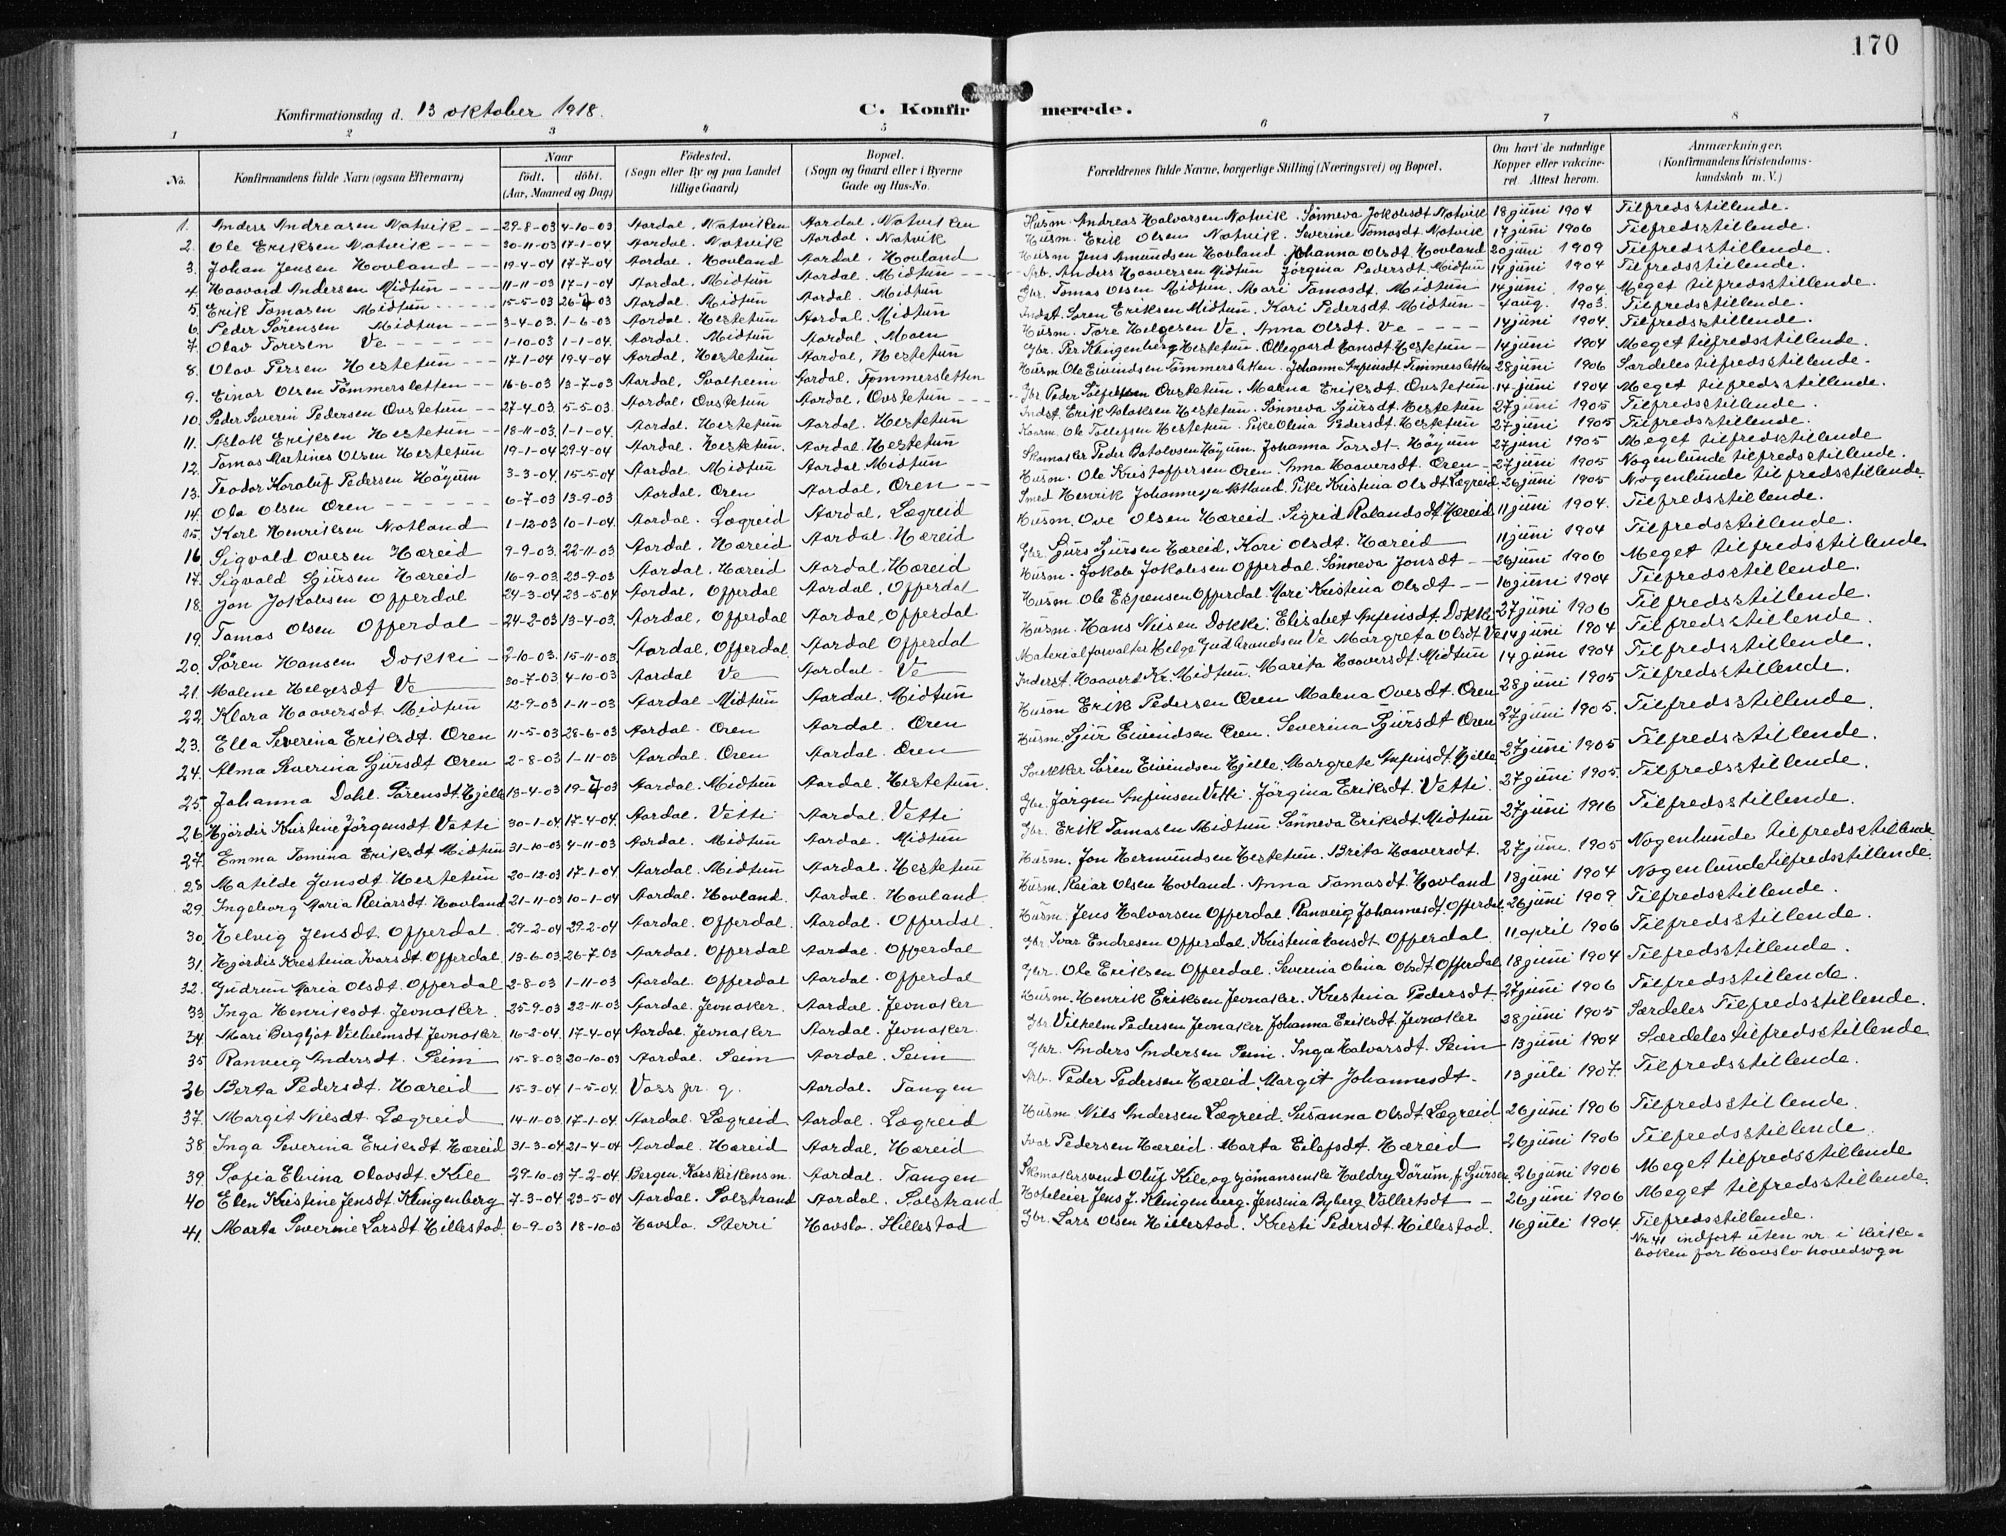 170
Konfirmationsdag d. 13 oktober 1918.
C. Konfirmerede.
1 2 3 4 5 6 7 8
No. Konfirmandens fulde Navn (ogsaa Efternavn) Naar født. døbt. (Aar, Maaned og Dag) Fødested. (Sogn eller By og paa Landet tillige Gaard) Bopæl. (Sogn og Gaard eller i Byerne Gade og Hus-No. Forældrenes fulde Navne, borgerlige Stilling (Næringsvei) og Bopæl. Om havt de naturlige Kopper eller vakcineret. Attest herom. Anmærkninger. (Konfirmandens Kristendomskundskab m. V.)
1. Anders Andreasen Natvik 29-8-03 4-10-03 Aardal. Natviken Aardal. Natviken Husm. Andreas Halvorsen Natvik. Sønneva Jakobsdt Natvik 18 juni 1904 Tilfredsstillende.
2. Ole Eriksen Natvik 30-11-03 17-1-04 Aardal. Natvik Aardal. Natvik Husm. Erik Olsen Natvik. Severine Tomasdt Natvik 17 juni 1906 Tilfredsstillende.
3. Johan Jensen Hovland 19-4-04 17-7-04 Aardal. Hovland Aardal. Hovland Husm Jens Amundsen Hovland. Johanna Olsdt Hovland 20 juni 1909 Tilfredsstillende.
4. Haavard Andersen Midtun 11-11-03 17-1-04 Aardal. Midtun Aardal. Midtun Arb. Anders Haaversen Midtun Jørgina Pedersdt. Midtun 14 juni 1904 Tilfredsstillende.
5. Erik Tomasen Midtun 15-5-03 26-7-03 Aardal. Midtun Aardal. Midtun Gbr. Tomas Olsen Midtun. Mari Tomasdt. Midtun 14 juni 1904. Meget tilfredsstillende.
6. Peder Sørensen Midtun 3-4-03. 1-6-03 Aardal. Hestetun Aardal. Midtun Indst. Søren Eriksen Midtun. Kari Pedersdt Midtun 4 aug. 1903. Tilfredsstillende.
7. Olav Toresen Ve 1-10-03 1-1-04. Aardal. Midtun Aardal. Moen Husm. Tore Helgesen Ve. Anna Olsdt. Ve 14 juni 1904. Tilfredsstillende.
8. Olav Persen Hestetun 17-1-04 19-4-04 Aardal. Hestetun Aardal. Hestetun Gbr. Per Klingenberg Hestetun. Ollegaard Hansdt Hestetun 14 juni 1904 Meget tilfredsstillende.
9. Einar Olsen Tømmersletten 16-6-03 13-7-03 Aardal. Svalheim Aardal. Tømmersletten Husm Ole Eivindsen Tømmersletten. Johanna Anfinsdt Timmersletten 28 juni 1906 Særdeles tilfredsstillende.
10. Peder Severin Pedersen Ovstetun 27-4-03. 5-5-03. Aardal. Ovstetun Aardal. Ovstetun Gbr Peder Ovstetun. Malena Eriksdt Ovstetun 14 juni 1904 Meget tilfredsstillende.
11. Aslak Eriksen Hestetun 18-11-03 1-1-04. Aardal. Hestetun Aardal. Hestetun Indst. Erik Aslaksen Hestetun. Sønneva Sjursdt. Hestetun 27 juni 1905 Tilfredsstillende.
12. Tomas Martines Olsen Hestetun 19-1-04 29-4-04 Aardal. Hestetun Aardal Hestetun Ole Tollefsen Hestetun. Eike Olena Pedersdt Hestetun 27 juni 1905 Tilfredsstillende.
13. Teodor Haraluf Pedersen Høyum 3-3-04 15-5-04 Aardal. Midtun Aardal. Midtun Skomaker Peder Botolvsen Høyum. Johanna Torsdt. Høyum 27 juni 1905 Meget tilfredsstillende
14. Ola Olsen Øren 6-7-03 13-9-03 Aardal. Øren Aardal. Øren Husm. Ole Kristoffersen Øren. Anna Haaversdt. Øren 27 juni 1905 Nogenlunde tilfredsstillende.
15. Karl Henriksen Natland 1-12-03 10-1-04. Aardal. Lægreid Aardal. Lægreid Smed Henrik Johannesen Natland. Eike Kristina Olsdt Lægreid. 26 juni 1905 Nogenlunde tilfredsstillende.
16 Sigvald Ovesen Hæreid 9-9-03. 22-11-03 Aardal. Hæreid Aardal. Hæreid Husm. Ove Olsen Hæreid. Sigrid Rolandsdt Hæreid 11 juni 1904. Tilfredsstillende.
17. Sigvald Sjursen Hæreid 16-9-03 23-9-03 Aardal. Hæreid Aardal. Hæreid Gbr. Sjurs Sjursen Hæreid. Kari Olsdt. Hæreid 11 juni 1904 Tilfredsstillende.
18. Jon Jokobsen Offerdal 24-3-04 23-5-04 Aardal. Offerdal Aardal. Offerdal Husm. Jokob Jokobsen Offerdal. Sønneva Jonsdt 26 juni 1906 Meget tilfredsstillende
19. Tomas Olsen Offerdal 24-2-03 13-4-03. Aardal. Offerdal Aardal. Offerdal Husm. Ole Espensen Offerdal. Mari Kristina Olsdt 16 juni 1904 Tilfredsstillende.
20. Søren Hansen Dokki 2-10-03. 15-11-03. Aardal. Offerdal Aardal Offerdal Husm. Hans Nilsen Dokki. Elisabet Anfinsdt. Dokki 27 juni 1906 Tilfredsstillende.
21. Malene Helgesdt Ve 30-7-03 4-10-03 Aardal Ve Aardal. Ve Materialforvalter Helge Gudbrandsen Ve. Margreta Olsdt Ve 14 juni 1904 Tilfredsstillende.
22. Klara Haaversdt. Midtun 12-9-03 1-11-03 Aardal. Midtun Aardal. Midtun Inderst. Haavert Kr. Midtun. Marita Haaversdt. Midtun 14 juni 1904 Tilfredsstillende.
23. Ella Severina Eriksdt. Øren 11-5-03 28-6-03 Aardal. Øren Aardal. Øren Husm Erik Pedersen Øren Malena Ovesdt. Øren 28 juni 1905 Tilfredsstillende.
24. Alma Severina Sjursdt Øren 2-8-03 1-11-03 Aardal. Øren Aardal. Øren Husm. Sjur Eivindsen Øren. Severina Sjursdt Øren 27 juni 1905. Tilfredsstillende.
25. Johanna Dahl Sørensdt. Hjelle 13-4-03 19-7-03 Aardal. Midtun Aardal. Hestetun. Snekker Søren Eivindsen Hjelle. Margrete Anfinsdt. Hjelle 27 juni 1905 Tilfredsstillende.
26 Hjørdis Kristine Jørgensdt Vetti 30-1-04 17-4-04. Aardal. Vetti Aardal. Vetti Gbr. Jørgen Anfinsen Vetti. Jørgina Eriksdt. Vetti. 27 juni 1905. Tilfredsstillende.
27. Emma Tomina Eriksdt Midtun 31-10-03 4-11-03 Aardal. Midtun Aardal. Midtun Gbr. Erik Tomasen Midtun Sønneva Eriksdt Midtun 27 juni 1916 Tilfredsstillende.
28 Matilde Jonsdt Hestetun 20-12-03 17-1-04 Aardal. Midtun Aardal. Hestetun Husm. Jon Hermundsen Hestetun. Brita Haaversdt. 27 juni. 1905 Nogenlunde tilfredsstillende
29. Ingeborg Maria Reiarsdt. Hovland 21-11-03 10-1-04 Aardal. Hovland. Aardal. Hovland Husm. Reiar Olsen Hovland. Anna Tomasdt Hovland 18 juni 1904 Nogenlunde tilfredsstillende.
30. Helvig Jensdt. Offerdal. 29-2-04 29-2-04 Aardal. Offerdal Aardal. Offerdal. Husm. Jens Halvorsen Offerdal. Ranveig Johannesdt. Offerdal 26 juni 1909 Tilfredsstillende.
31. Hjørdis Krestina Ivarsdt. Offerdal. 13-6-03 26-7-03 Aardal. Offerdal Aardal. Offerdal Gbr. Ivar Endresen Offerdal. Kristina Hansdt. Offerdal 11 april 1906 Tilfredsstillende.
32. Gudrun Maria Olsdt. Offerdal 2-8-03 1-11-03 Aardal. Offerdal Aardal. Offerdal Gbr. Ole Eriksen Offerdal. Severina Olina Olsdt Offerdal 18 juni 1904 Tilfredsstillende.
33. Inga Henriksdt Jevnaker. 25-9-03 22-11-03 Aardal. Jevnaker Aardal. Jevnaker Husm. Henrik Eriksen Jevnaker. Kristina Pedersdt. 27 juni 1906 Tilfredsstillende.
34. Mari Bergljot Vilhelmsdt Jevnaker 16-2-04 17-4-04 Aardal. Jevnaker Aardal. Jevnaker. Gbr. Vilhelm Pedersen Jevnaker Johanna Eriksdt. Jevnaker 28 juni 1905 Særdeles Tilfredsstillende.
35 Ranveig Andersdt. Seim 15-8-03 20-10-03 Aardal. Seim Aardal. Seim Gbr. Anders Andersen Seim. Inga Halvorsdt. Seim 13 juni 1904 Særdeles tilfredsstillende
36 Berta Pedersdt. Hæreid 15-3-04 1-5-04. Voss pr. g. Aardal. Tangen Arb. Peder Pedersen Hæreid. Margit Johannesdt. 13 juli 1907. Tilfredsstillende.
37. Margit Nilsdt Lægreid 14-11-03 17-1-04. Aardal. Lægreid Aardal. Lægreid Husm. Nils Andersen Lægreid. Susanna Olsdt. Lægreid. 26 juni 1906 Tilfredsstillende.
38. Inga Severina Eriksdt Hæreid 31-3-04 21-4-04 Aardal. Hæreid Aardal. Hæreid Pedersen Hæreid. Marta Eilefsdt. Hæreid 26 juni 1906 Tilfredsstillende.
39. Sofia Elvina Olavsdt. Kile 29-10-03 7-2-04. Bergen. Korskirkens m. Aardal. Tangen Skomakersvend Oluf Kile og sjømansenke Holdry Dørum f. Sjursen 26 juni 1906 Meget tilfredsstillende
40 Elen Kristine Jensdt Klingenberg 7-3-04 23-5-04 Aardal. Solstrand Aardal. Solstrand Hoteleier Jens J. Klingenberg. Jensina Byberg Vollertsdt 26 juni 1906 Meget tilfredsstillende.
41. Marta Severine Larsdt Hillestad. 6-9-03 18-10-03 Havslo. Skerri Havslo. Hillestad Gbr. Lars Olsen Hillestad. Kresti Pedersdt. Hillestad. 16 juli 1904. Tilfredsstillende.
Nr 41 indført uten nr. i kirke-
boken for Havslo hovedsogn